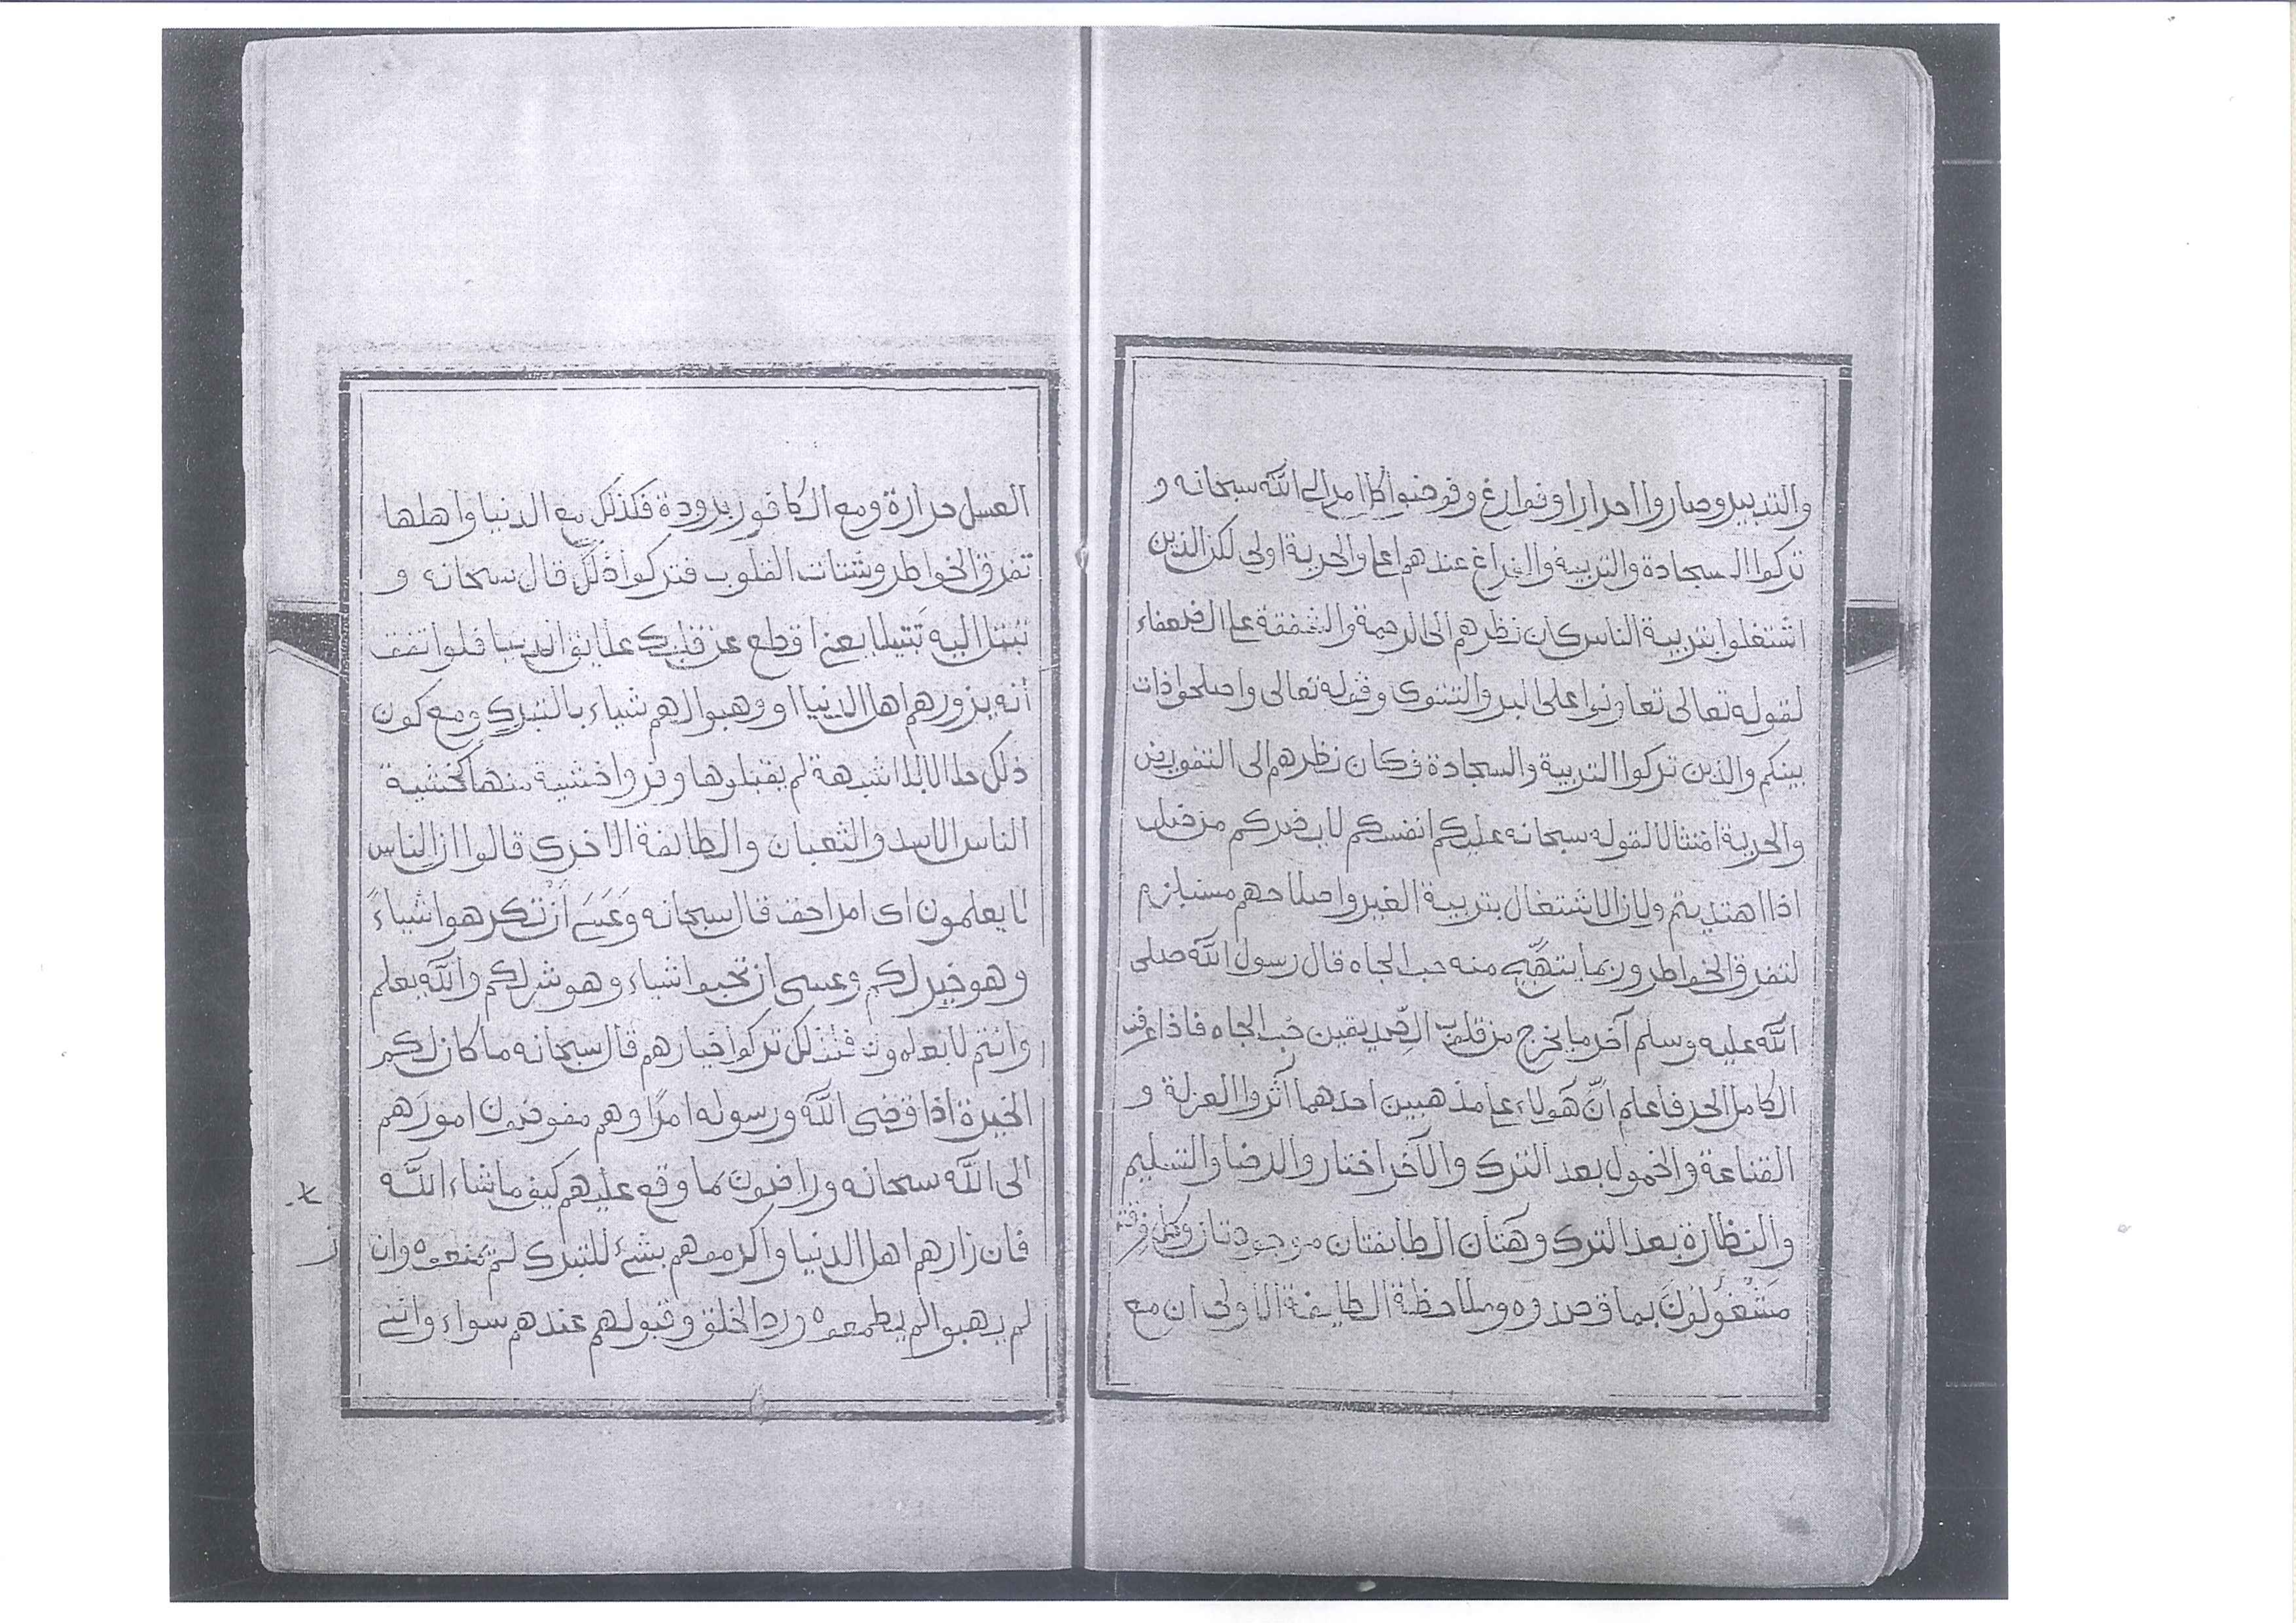 والتدبير وصاروا احرارا وفوارغ وفوضوا كل امر الى الله سبحانه و
تركوا السجادة والتربية والفراغ عندهم اعلى والحرية اولى لكن الذين
اشتغلوا بتربية الناس كان نظرهم الى الرحمة والشفقة على الضعفاء
لقوله تعالى تعاونوا على البر والتقوى وقوله تعالى واصلحوا ذات
بينكم والذين تركوا التربية والسجادة فكان نظرهم الى التفويض
والحرية امتثالا لقوله سبحانه عليكم انفسكم لا يضركم من ضل
اذا اهتديتم ولان الاشتغال بتربية الغير واصلاحهم مستلزم
لتفرق الخواطر وربما منه حب الجاه قال رسول الله صلى
الله عليه وسلم آخر ما يخرج من قلوب الصّديقين حُب الجاه فاذا عرفت
الكامل الحر فاعلم انّ هَولاء على مذهبين احدهما آثروا العزلة و
القناعة والخمول بعد الترك والآخر اختاروا الرضا والتسليم
والنظارة بعد الترك وهَتان الطايفتان موجودتان وكل فرقة
مَشْغُولُونَ بما قصدوه وملاحظة الطايفة الاولى ان مع
العسل حرارة ومع الكافور برودة فكذلك مع الدنيا واهلها
تفرق الخواطر وشتات القلوب فتركوا ذلك قال سبحانه و
تبتل اليه تَبتيلا يعني اقطع عن قلبك علايق الدنيا فلو اتفق
أنه يزورهم اهل الدنيا او وهبوا لهم شياء بالتبرك ومع كون
ذلك حلالا بلا شبهة لم يقبلوها وفروا خشية منها كخشية
الناس الاسد والثعبان والطائفة الاخرى قالوا ان الناس
لا يعلمون اى امر احق قال سبحانه وَعَسَى اَنْ تكرهوا شياءً
وهو خير لكم وعسى ان تحبوا شياء وهو شر لكم والله يعلم
وانتم لا تعلمون فلذلك تركوا اختيارهم قال سبحانه ما كان لكم
الخيرة اذا قضى الله ورسوله امرًا وهم مفوضون امورَهم
الى الله سبحانه وراضون بما وقع عليهم كيف ما شاء اللّه
فان زارهم اهل الدنيا واكرموهم بشئ للتبرك لم يمنعوه وان
لم يهبوا لم يطمعوه ورد الخلق وقبولهم عندهم سواء وانني